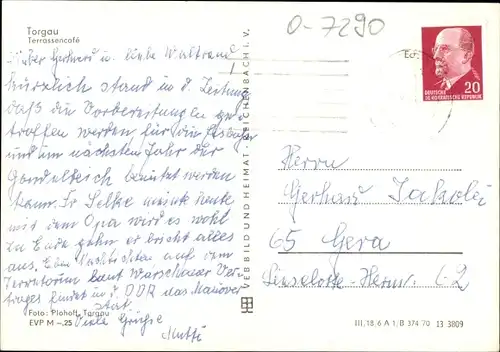 Torgau
Terrassencafé
0-7290
Lieber Gerhard u. liebe Waltraud
!
kürzlich stand in d. Zeitung
daß die Vorbereitungen ge-
troffen werden für die
und im nächsten Jahr der
Gondelteich benutzt werden
kann. Fr. Selke meinte heute
mit dem Opa wird es wohl
zu Ende gehn er bricht alles
aus. Eben Nachrichten auf dem
Territorium laut Warschauer Ver-
trages findet in d. DDR das Manöver
statt
Viele Grüße
Mutti
Foto: Plohoff, Torgau
EVP M –.25
VEB BILD UND HEIMAT · REICHENBACH I. V.
DEUTSCHE
DEMOKRATISCHE REPUBLIK
20
Herrn
Gerhard
65 Gera
Liselotte-Herrm. 
III/18/6 A 1/B 374/70 13 3809